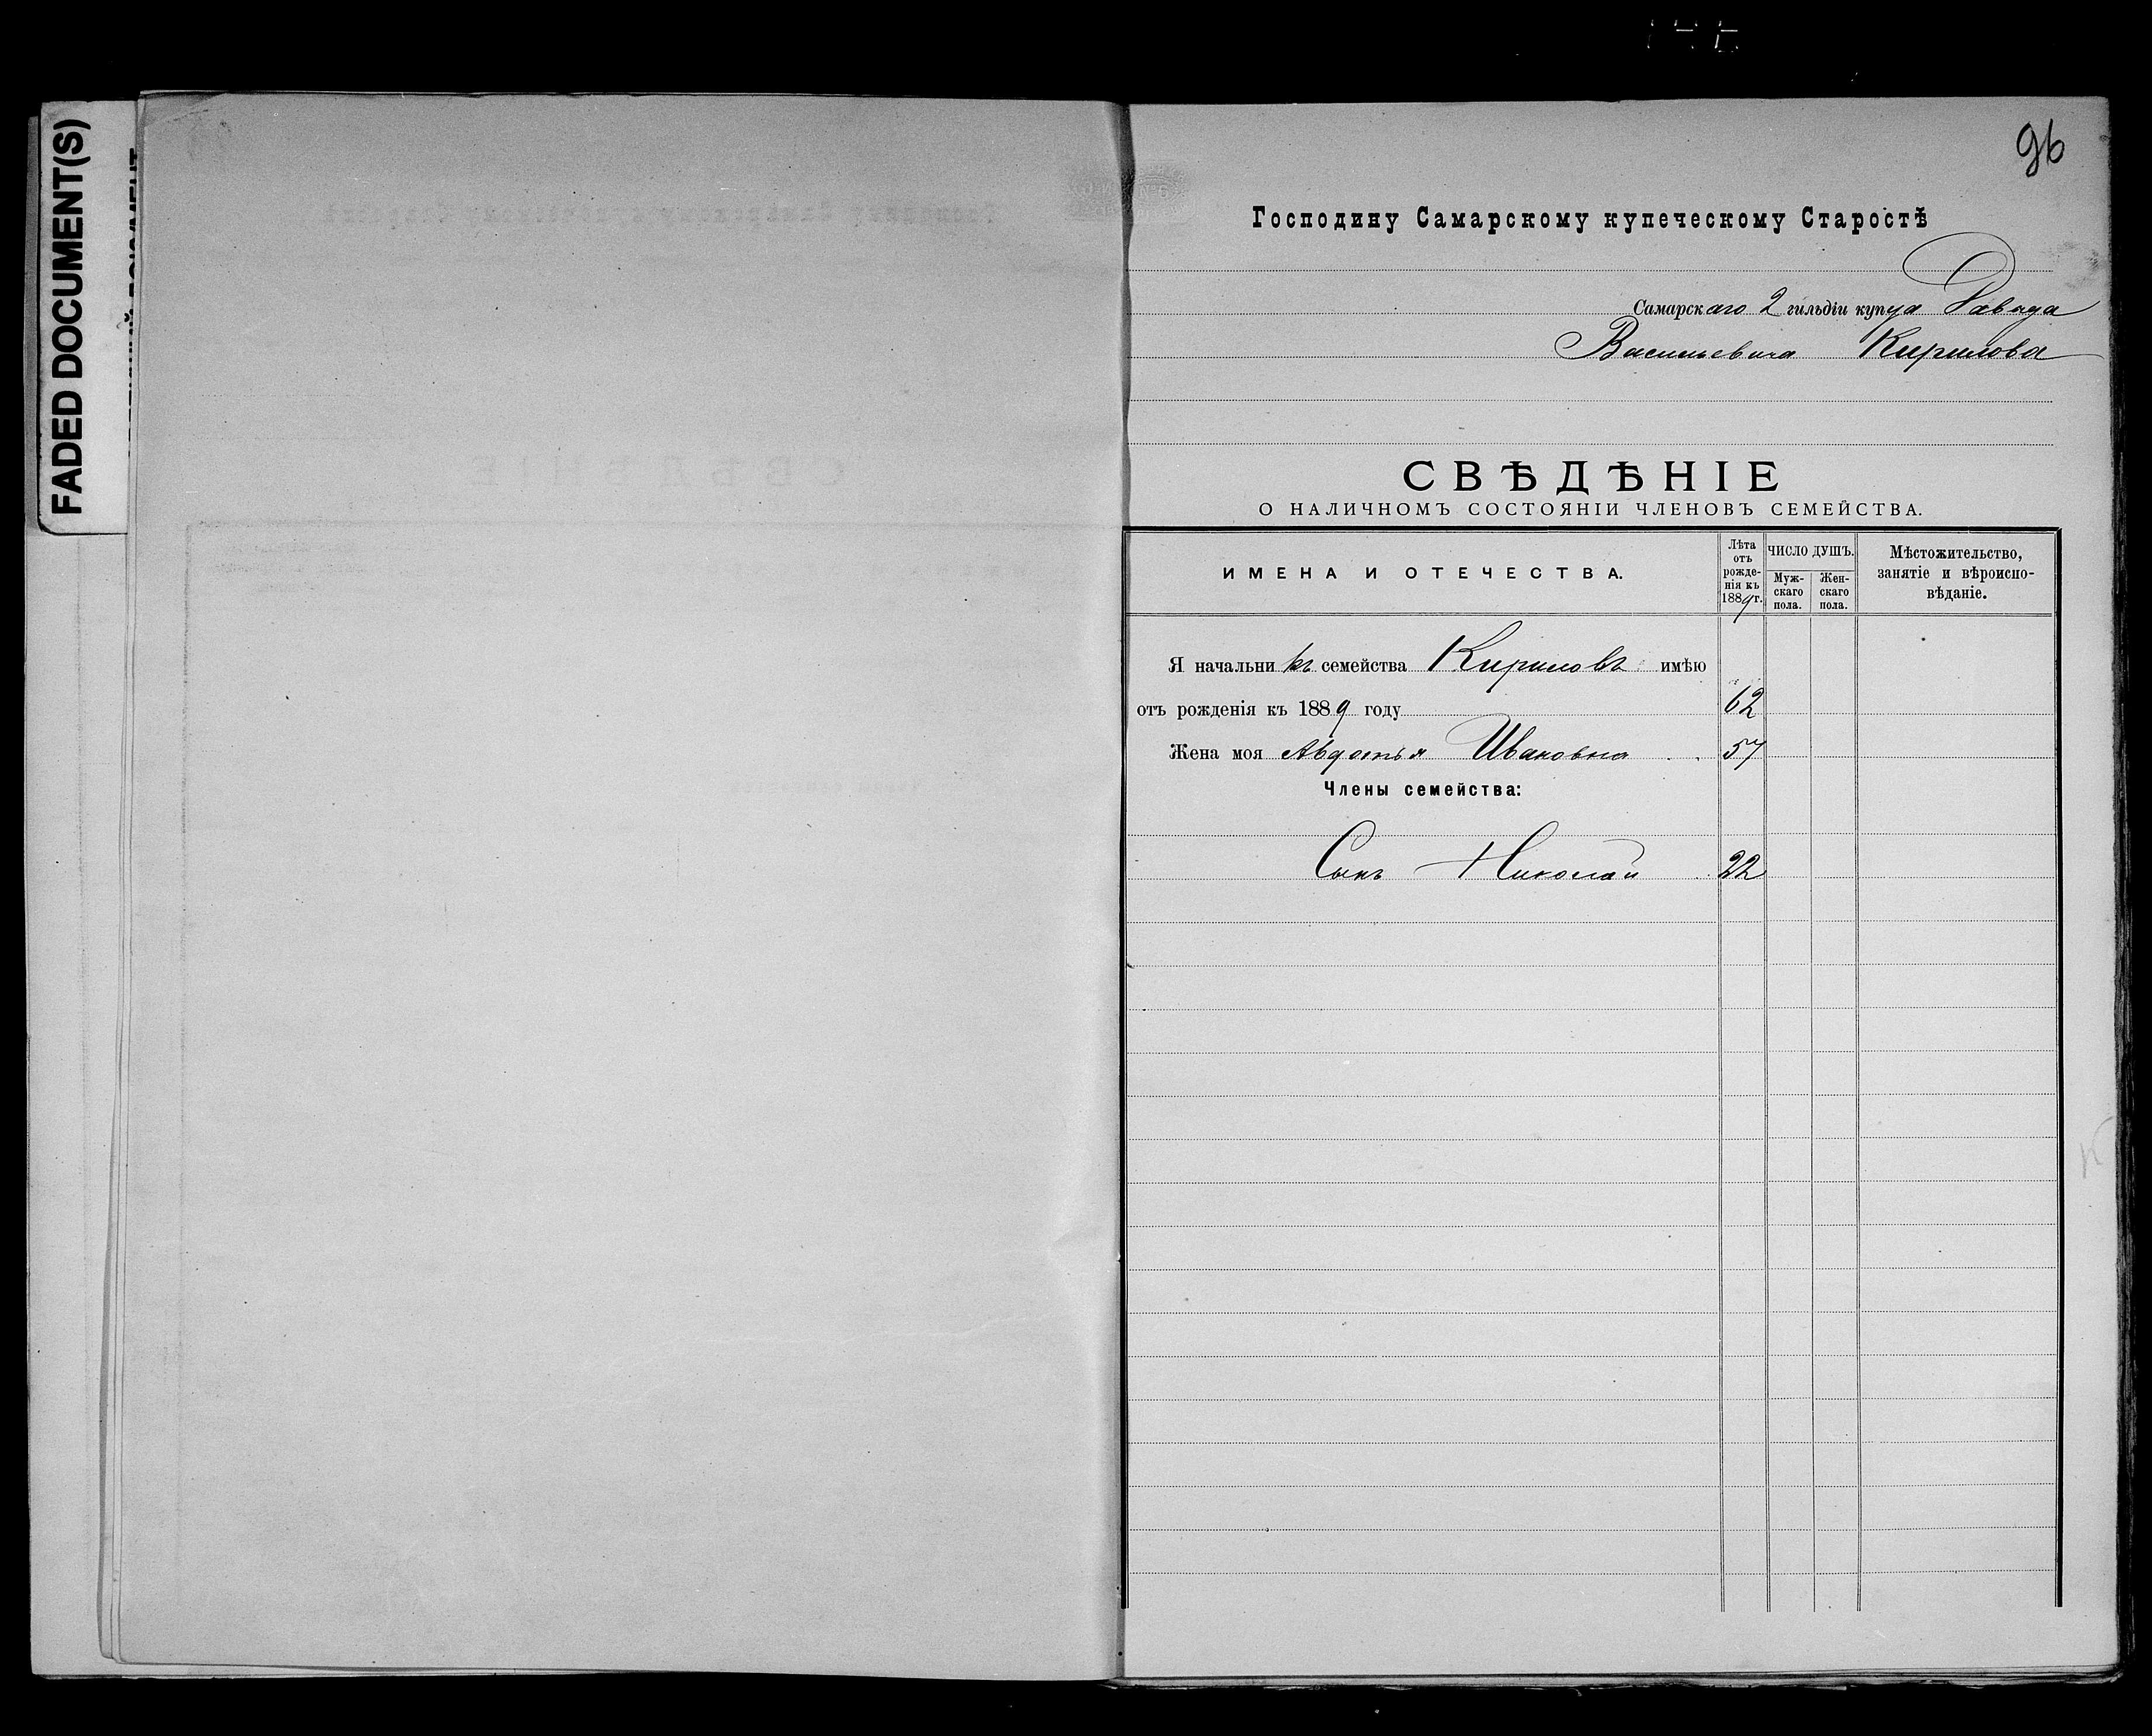 FADED DOCUMENT(S)
96
Господину Самарскому купеческому Старостѣ
Самарскаго 2 гильдіи купца Давыда
Васильевича Кирилова
СВѢДѢНІЕ
О НАЛИЧНОМЪ СОСТОЯНІИ ЧЛЕНОВЪ СЕМЕЙСТВА.
ИМЕНА И ОТЕЧЕСТВА.
Лѣта
отъ
рожде-
нія къ
1889 г.
ЧИСЛО ДУШЪ.
Муж-
скаго
пола.
Жен-
скаго
пола.
Мѣстожительство,
занятіе и вѣроиспо-
вѣданіе.
Я начальникъ семейства Кириловъ имѣю
отъ рожденія къ 1889 году 62
Жена моя Авдотья Ивановна 57
Члены семейства:
Сынъ Николай 22